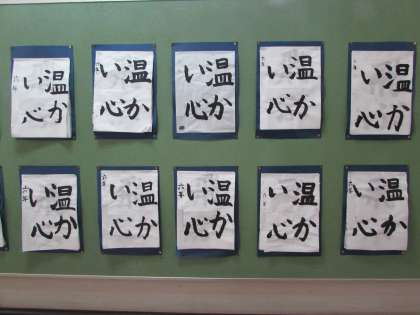 温か
い心
温か
い心
温か
い心
温か
い心
温か
い心
温か
い心
六年
温か
い心
温か
い心
六年
温か
い心
温か
い心